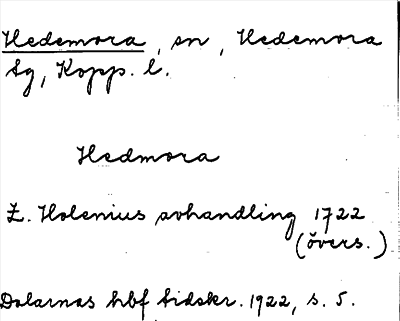 Hedemora, sn, Hedemora
sg, Kopp. l.
Hedmora
Z. Holenius avhandling 1722
(övers.)
Dalarnas hbf tidskr. 1922, s. 5.